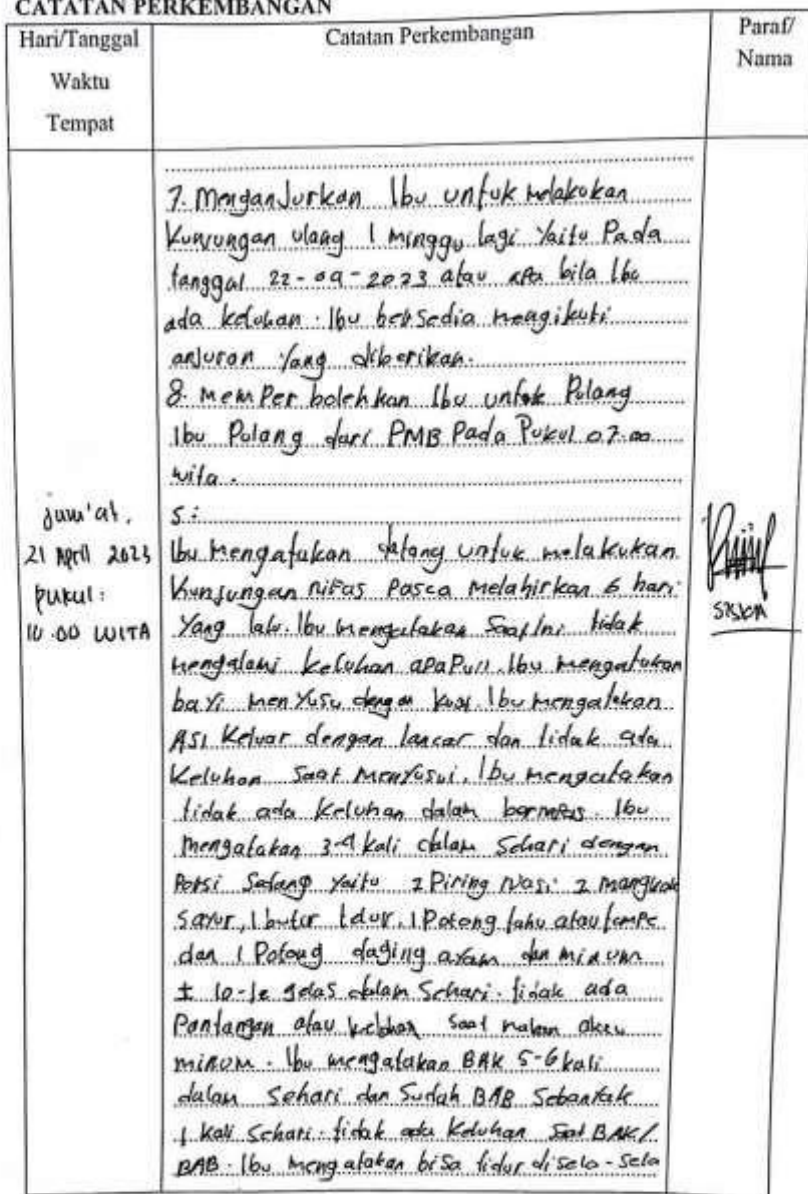 CATATAN PERKEMBANGAN
Hari/Tanggal
Waktu
Tempat
Catatan Perkembangan
Paraf/
Nama
7. Menganjurkan Ibu untuk melakukan
Kunjungan ulang 1 minggu lagi Yaitu Pada
tanggal 22-04-2023 atau apa bila Ibu
ada keluhan. Ibu bersedia mengikuti
anjuran Yang diberikan.
8. Memper bolehkan Ibu untuk Pulang
Ibu Pulang dari PMB Pada Pukul 07.00
wita.
Jum'at,
21 April 2023
pukul:
10.00 WITA
S:
Ibu Mengatakan datang untuk melakukan
Kunjungan nifas Pasca Melahirkan 6 hari
Yang lalu. Ibu mengatakan Saat Ini tidak
mengalami keluhan aPaPun. Ibu mengatakan
baYi menYusu dengan kuat. Ibu mengatakan
ASI Keluar dengan lancar dan tidak ada
Keluhan Saat Menyusui. Ibu mengatakan
tidak ada Keluhan dalam. Ibu
mengatakan 3-4 kali dalam Sehari dengan
Porsi Sedang Yaitu Piring Nasi 2 mangkok
Sayur, 1 butir telur, 1 Potong tahu atau tempe
dan 1 Potong daging ayam dan minum
± gelas dalam Sehari. tidak ada
Pantangan atau keluhan Saat makan atau
minum. Ibu mengatakan BAK 5-6 kali
dalam Sehari dan Sudah BAB Sebanyak
1 kali Sehari. tidak ada Keluhan Saat BAK/
BAB. Ibu mengatakan bisa tidur disela-sela
SISKA